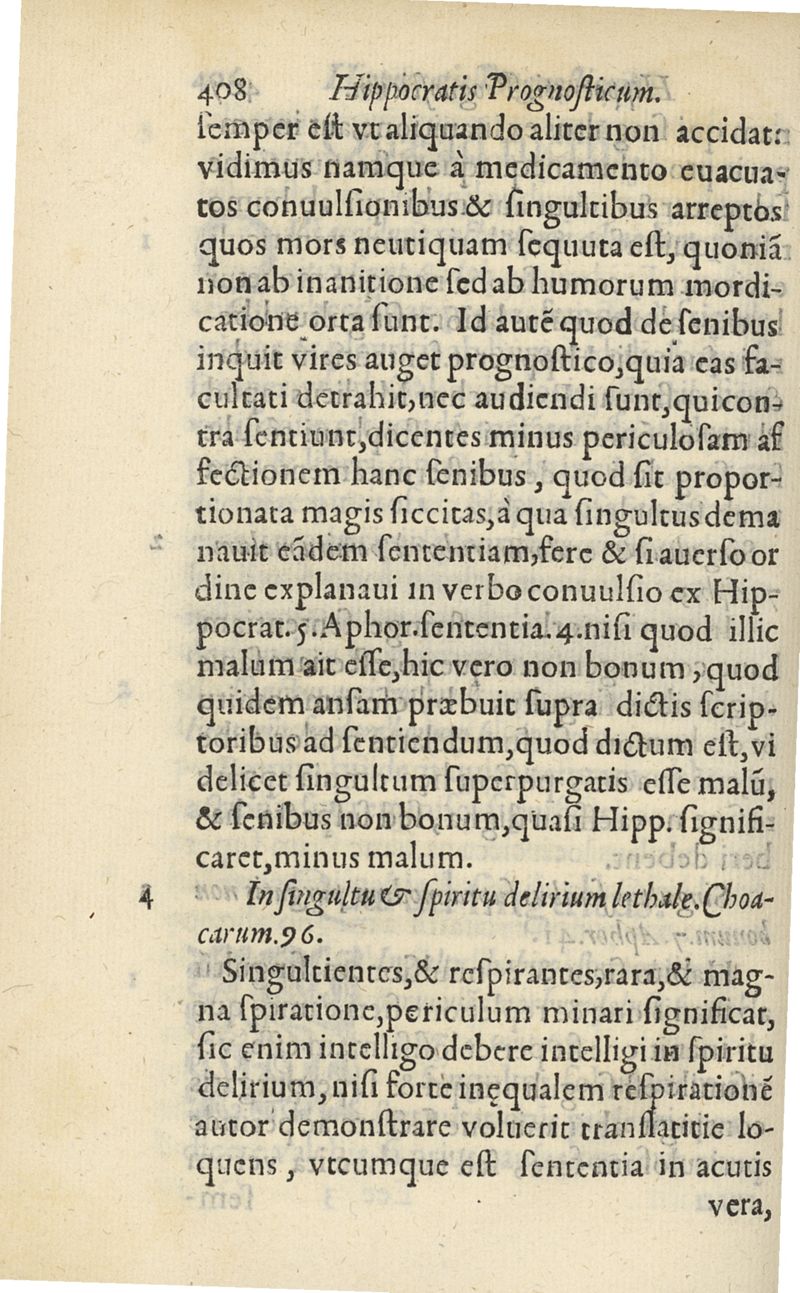 408 Hippocratis Prognosticum.
semper est vt aliquando aliter non accidat:
vidimus namque à medicamento euacua-
tos conuulsionibus & singultibus arreptos
quos mors neutiquam sequuta est, quoniã
non ab inanitione sed ab humorum mordi-
catione orta sunt. Id autẽ quod de senibus
inquit vires auget prognostico, quia eas fa-
cultati detrahit, nec audiendi sunt, qui con-
tra sentiunt, dicentes minus periculosam af
fectionem hanc senibus, quod sit propor-
tionata magis siccitas, à qua singultus dema
nauit eãdem sententiam, fere & si auerso or
dine explanaui in verbo conuulsio ex Hip-
pocrat. 5. Aphor. sententia. 4. nisi quod illic
malum ait esse, hic vero non bonum, quod
quidem ansam præbuit supra dictis scrip-
toribus ad sentiendum, quod dictum est, vi
delicet singultum superpurgatis esse malũ,
& senibus non bonum, quasi Hipp. signifi-
caret, minus malum.
4 In singultu & spiritu delirium lethale. Choa-
carum. 96.
Singultientes, & respirantes, rara, & mag-
na spiratione, periculum minari significat,
sic enim intelligo debere intelligi in spiritu
delirium, nisi forte inęqualem respirationẽ
autor demonstrare voluerit translatitie lo-
quens, vtcumque est sententia in acutis
vera,